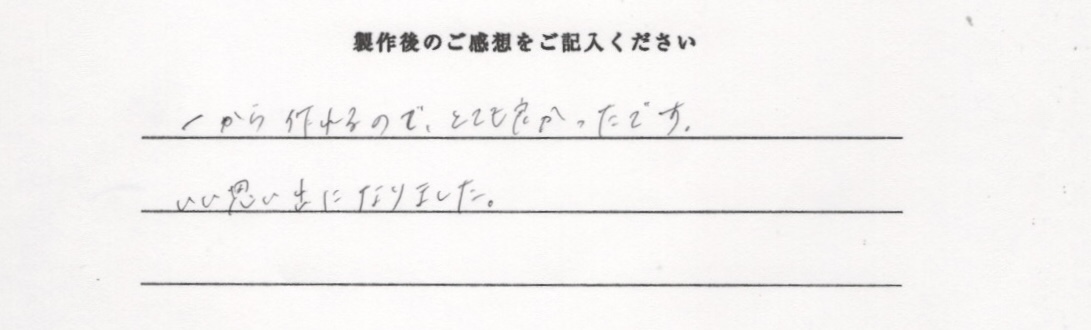 製作後のご感想をご記入ください
一から作れるので、とても良かったです。
いい思い出になりました。